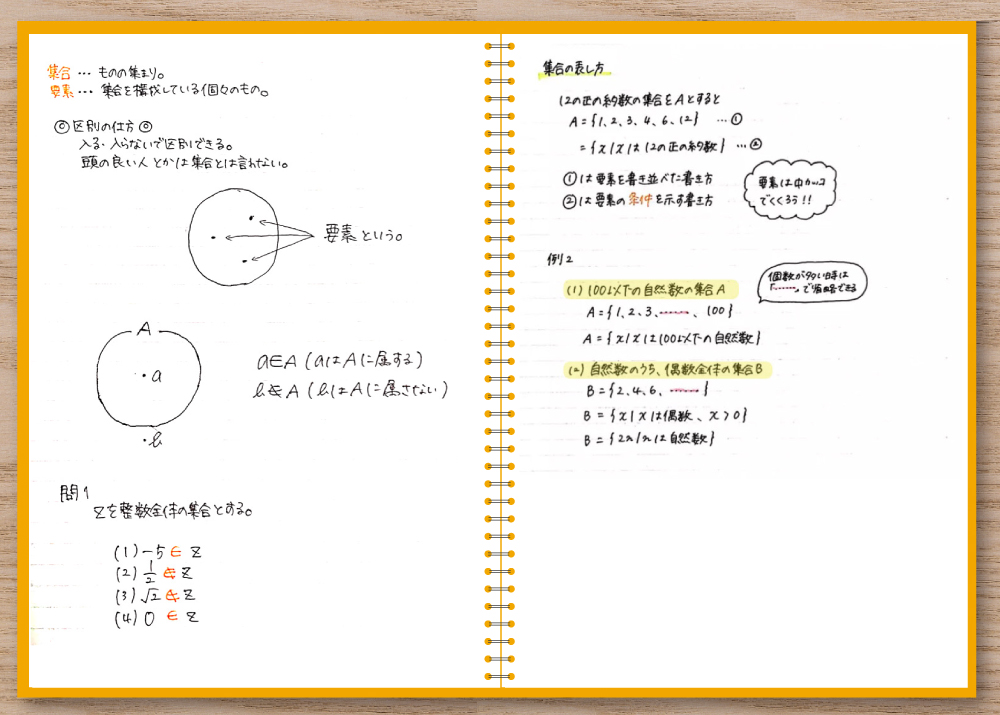 集合 … ものの集まり。
要素 … 集合を構成している個々のもの。
◎区別の仕方◎
入る・入らないで区別できる。
頭の良い人とかは集合とは言わない。
要素という。
A
a
b
a∈A (aはAに属する)
b∉A (bはAに属さない)
問1
Zを整数全体の集合とする。
(1) -5 ∈ Z
(2) 1/2 ∉ Z
(3) √2 ∉ Z
(4) 0 ∈ Z
集合の表し方
12の正の約数の集合をAとすると
A={1、2、3、4、6、12} …①
={x|xは12の正の約数} …②
①は要素を書き並べた書き方
②は要素の条件を示す書き方
要素は中カッコ
でくくろう!!
例2
個数が多い時は
「……」で省略できる
(1) 100以下の自然数の集合A
A={1、2、3、……、100}
A={x|xは100以下の自然数}
(2) 自然数のうち、偶数全体の集合B
B={2、4、6、……}
B={x|xは偶数、x>0}
B={2n|nは自然数}